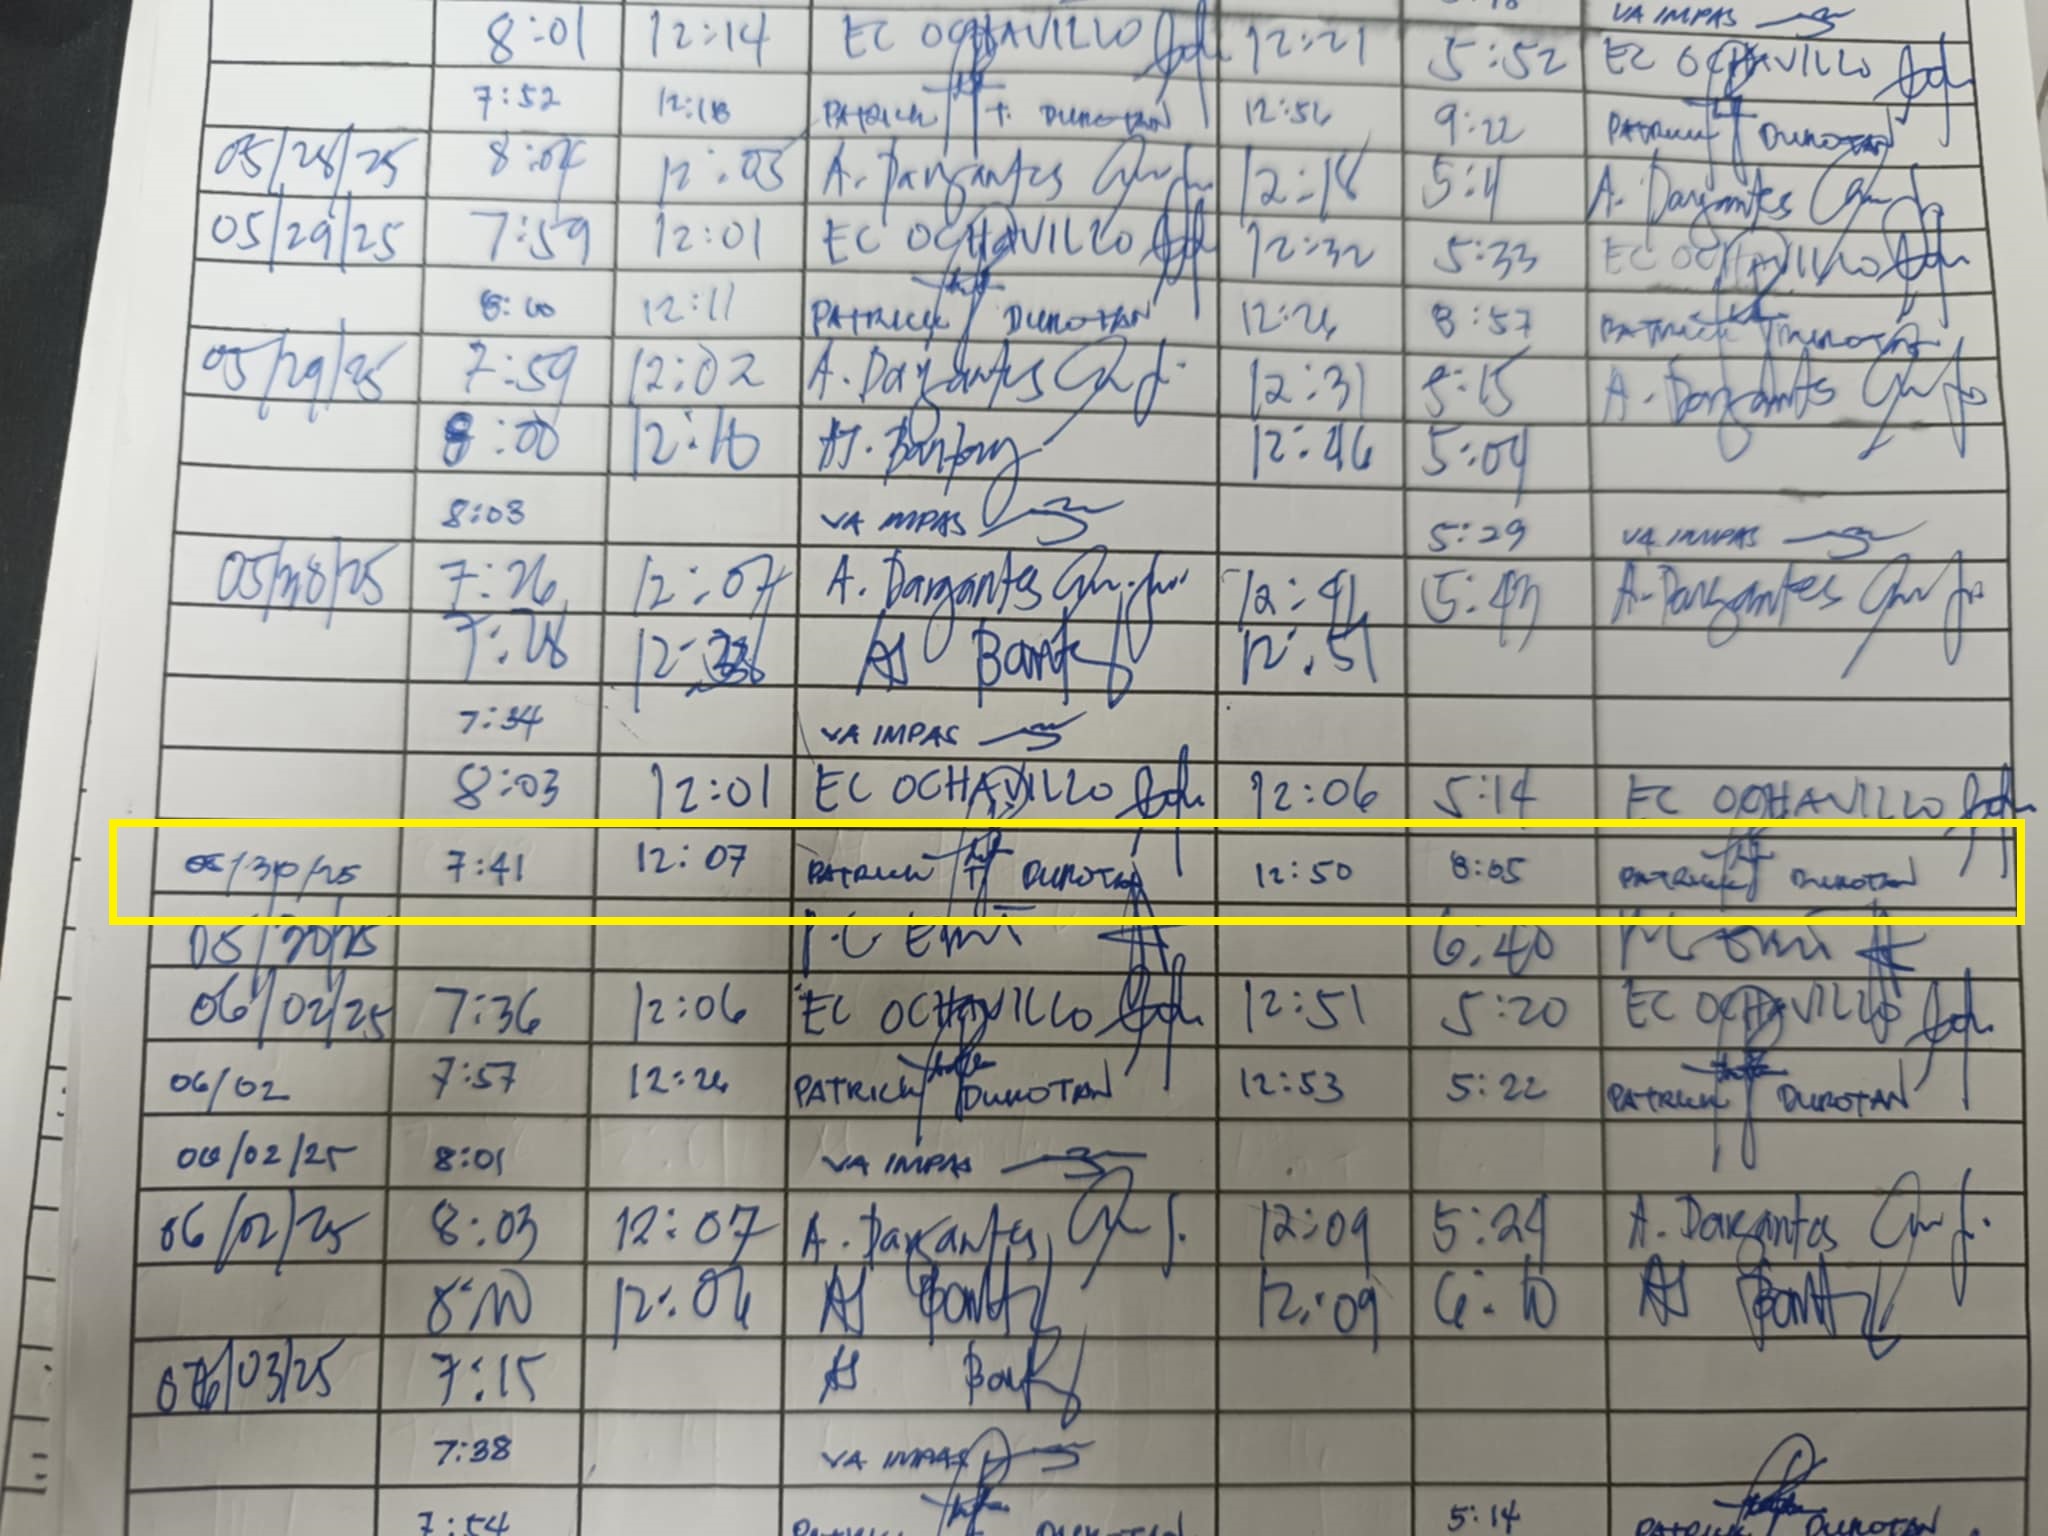 VA IMPAS
8:01 12:14 EC OCHAVILLO 12:21 5:52 EC OCHAVILLO
7:52 12:18 PATRICK T. DUROTAN 12:56 9:22 PATRICK DUROTAN
05/28/25 8:04 12:05 A. Dargantes 12:18 5:11 A. Dargantes
05/29/25 7:59 12:01 EC OCHAVILLO 12:32 5:33 EC OCHAVILLO
8:00 12:11 PATRICK DUROTAN 12:26 8:57 PATRICK DUROTAN
05/29/25 7:59 12:02 A. Dargantes 12:31 5:15 A. Dargantes
8:00 12:10 12:46 5:04
8:03 VA IMPAS 5:29 VA IMPAS
7:26 12:07 A. Dargantes 12:41 5:43 A. Dargantes
7:28 AJ 12:51
7:34 VA IMPAS
8:03 12:01 EC OCHAVILLO 12:06 5:14 EC OCHAVILLO
05/30/25 7:41 12:07 PATRICK T DUROTAN 12:50 8:05 PATRICK DUROTAN
05/30/25 6:40
06/02/25 7:36 12:06 EC OCHAVILLO 12:51 5:20 EC OCHAVILLO
06/02 7:57 12:26 PATRICK DUROTAN 12:53 5:22 PATRICK DUROTAN
06/02/25 8:01 VA IMPAS
06/02/25 8:03 12:07 A. Dargantes 12:09 5:24 A. Dargantes
8:10 12:06 AJ 12:09 6:10 AJ
06/03/25 7:15 AJ
7:38 VA IMPAS
7:54 PATRICK DUROTAN 5:14 PATRICK DUROTAN